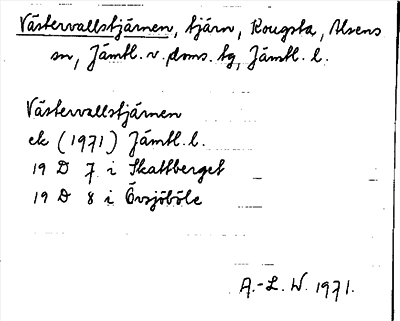 Västervallstjärnen, tjärn, Rougsta, Alsens
sn, Jämtl. v. doms. tg, Jämtl. l.
Västervallstjärnen
ek (1971) Jämtl. l.
19 D 7 i Skattberget
19 D 8 i Övsjöböle
A.-L. W. 1971.